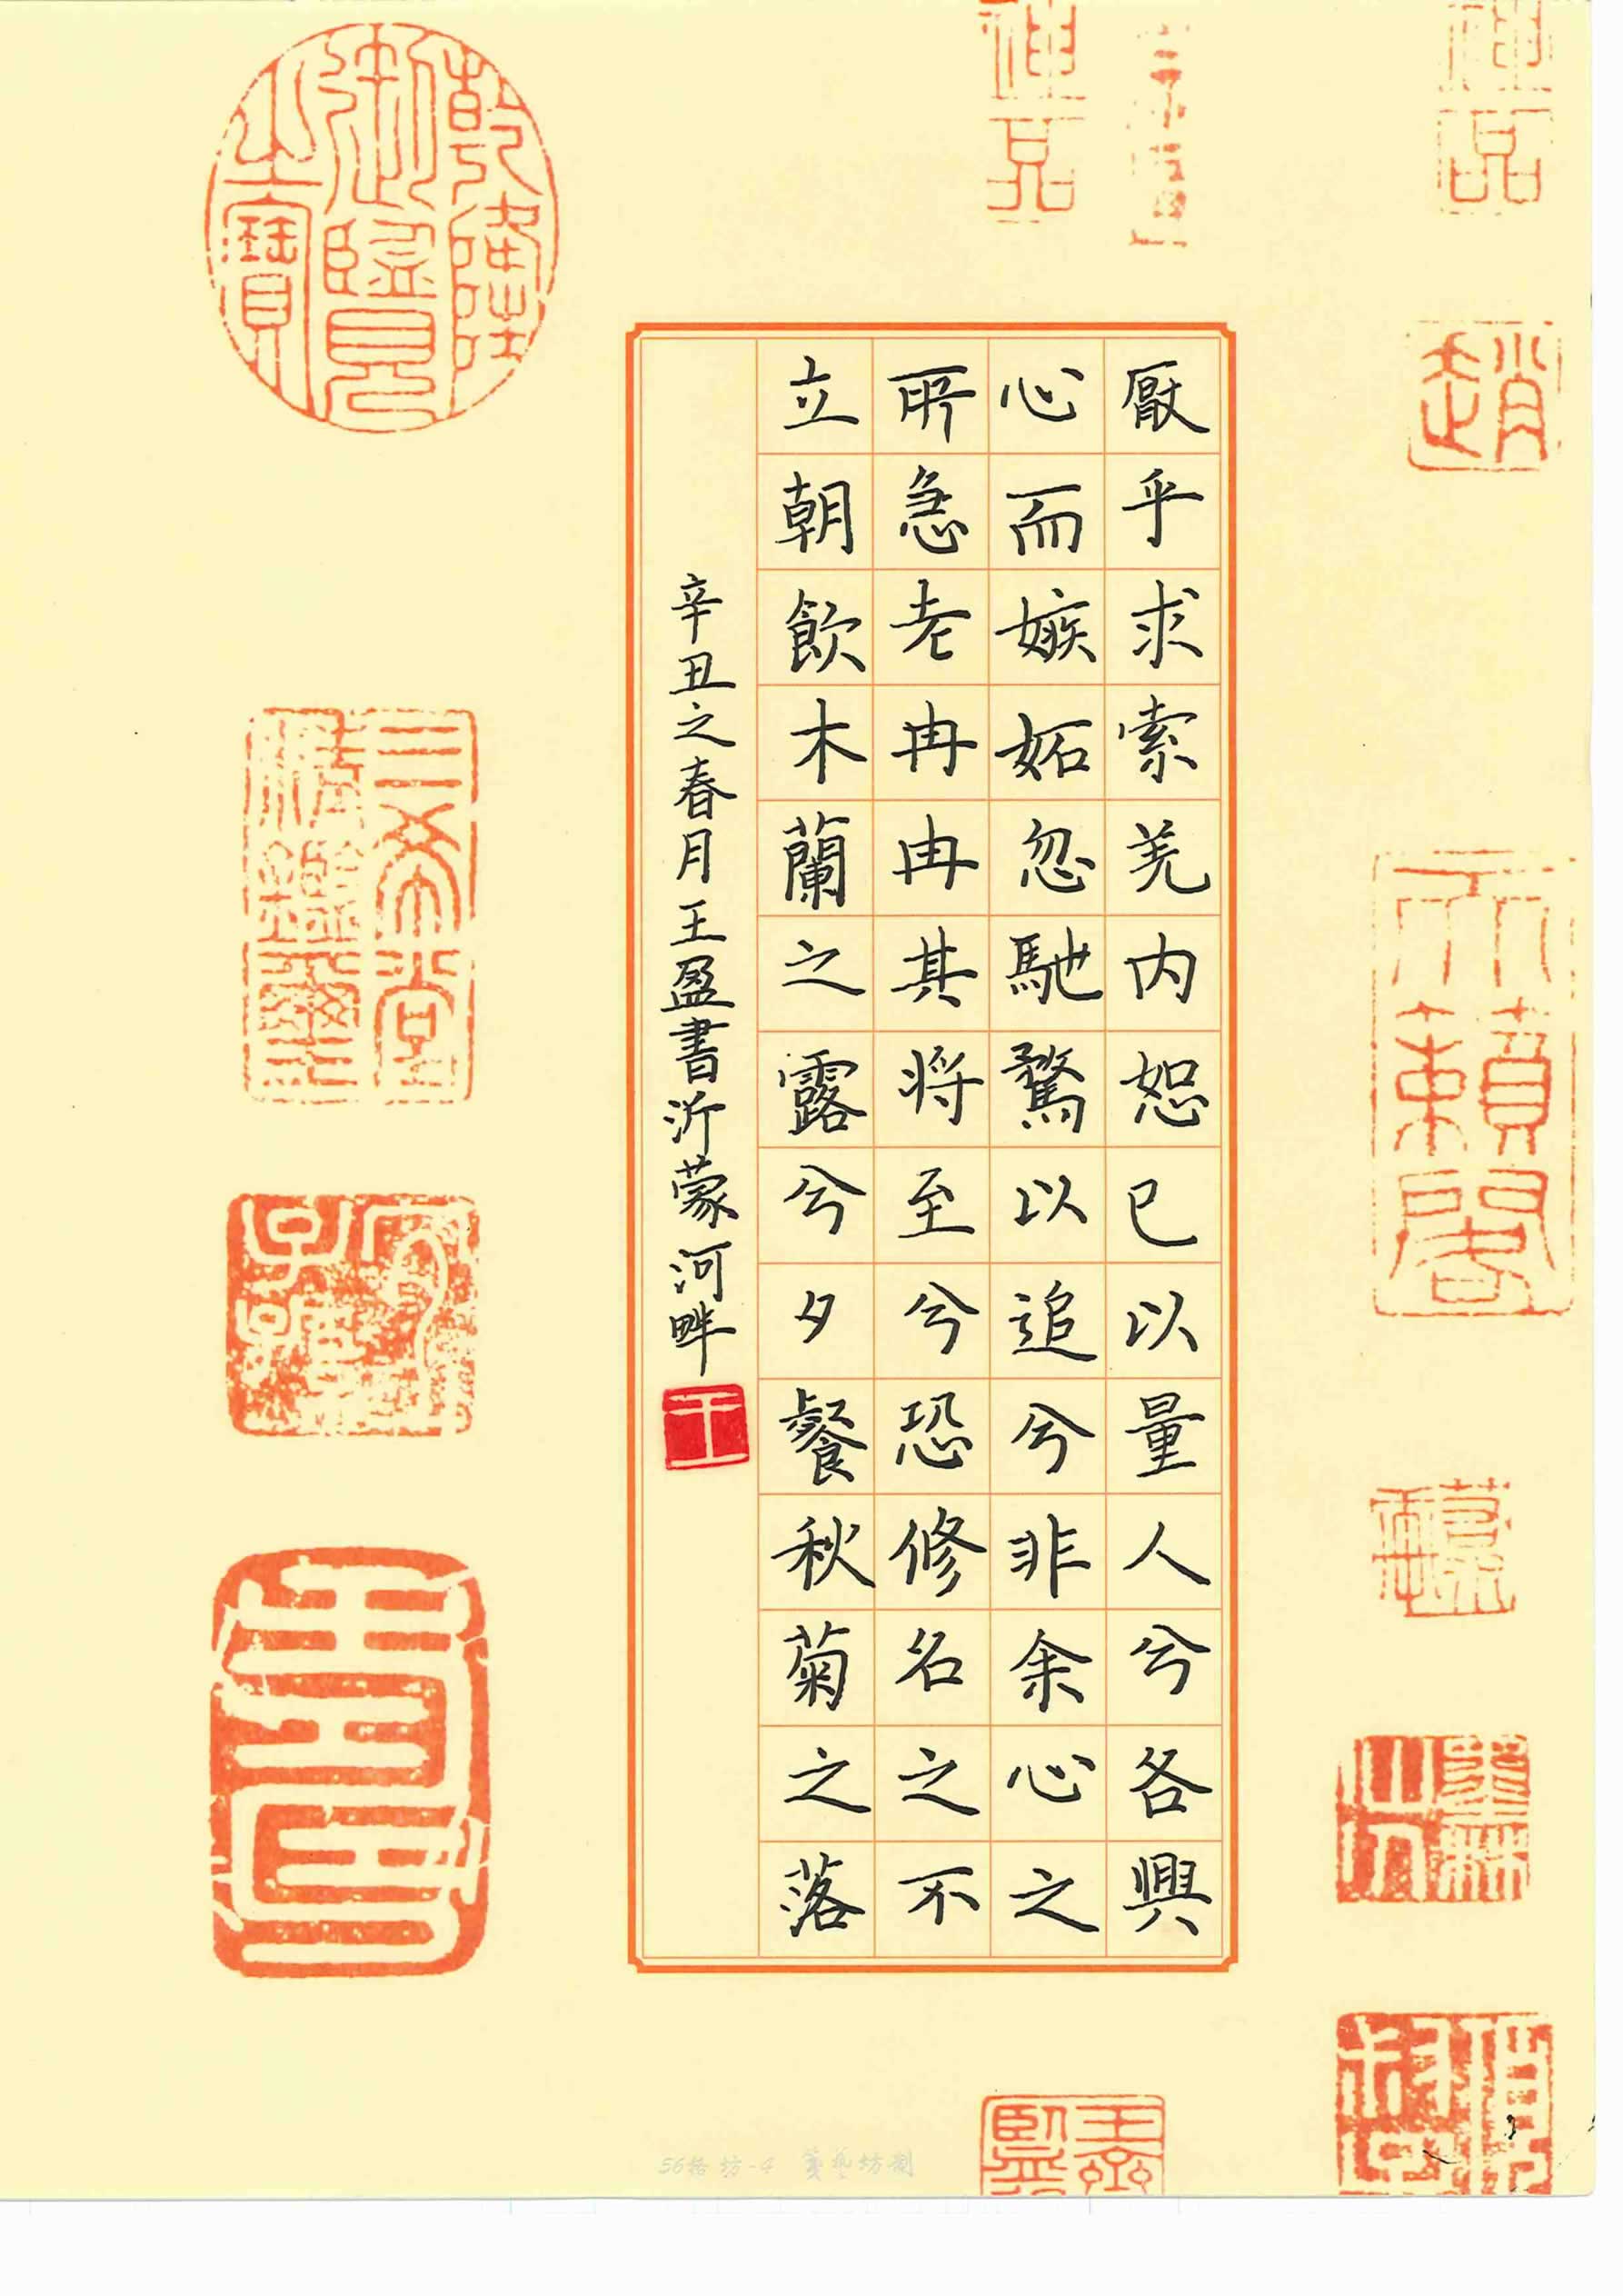 厭乎求索羌内恕己以量人兮各興
心而嫉妬忽馳騖以追兮非余心之
所急老冉冉其将至兮恐修名之不
立朝飲木蘭之露兮夕餐秋菊之落
辛丑之春月王盈書沂蒙河畔
王
乾隆御覽之寶
三希堂精鑒璽
宜子孫
神品
神品
趙
天籟閣
墨林山人
56格坊-4 箋藝坊制